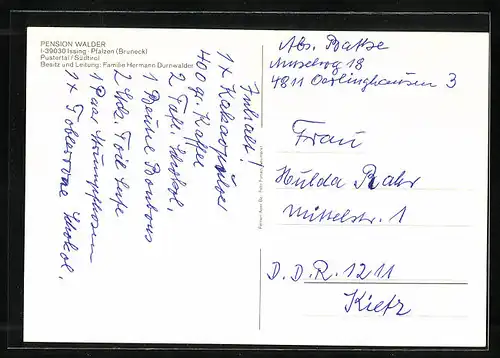 PENSION WALDER
I-39030 Issing - Pfalzen (Bruneck)
Pustertal / Südtirol
Besitz und Leitung: Familie Hermann Durnwalder
Inhalt!
1 x Kakaopulver
400 g. Kaffee
2 Tafl. Schokol.
1 Beutel Bonbons
2 Stck. Toil. Seife
1 Paar Strumpfhosen
1 x Toblerone Schokol.
Abs.
18
4811 Oerlinghausen 3
Frau
Hulda Bahr
Mittelstr. 1
D. D. R. 1211
Kietz